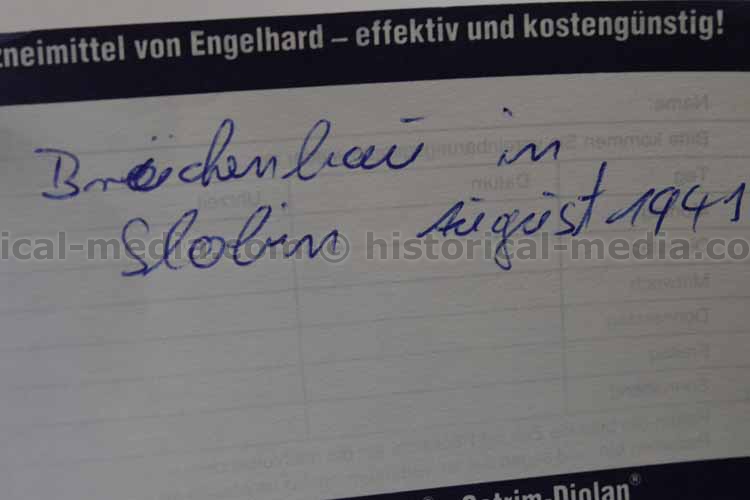 zneimittel von Engelhard – effektiv und kostengünstig!
Name:
Bitte kommen
Tag
Datum
Uhrzeit
Brückenbau in
Slobin August 1941
ical-media.com © historical-media.co
Mittwoch
Donnerstag
Freitag
Sonnabend
Cotrim-Diolan®